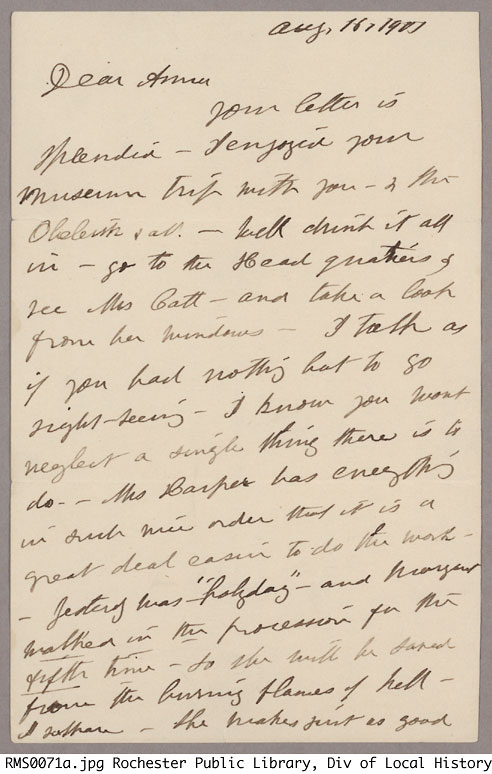 Aug, 16, 1901
Dear Anna
Your letter is
splendid — I enjoyed your
museum trip with you — & the
Obelisk & all. — Well drink it all
in — go to the Head quarters &
see Mrs Catt — and take a look
from her windows — I talk as
if you had nothing but to go
sight-seeing — I know you wont
neglect a single thing there is to
do. — Mrs Harper has everything
in such nice order that it is a
great deal easier to do the work —
— Yesterday was "holyday" — and Margaret
walked in the procession for the
fifth time — so she will be saved
from the burning flames of hell —
I suppose — She makes just as good
RMS0071a.jpg Rochester Public Library, Div of Local History